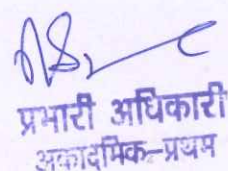 प्रभारी अधिकारी
अकादमिक–प्रथम